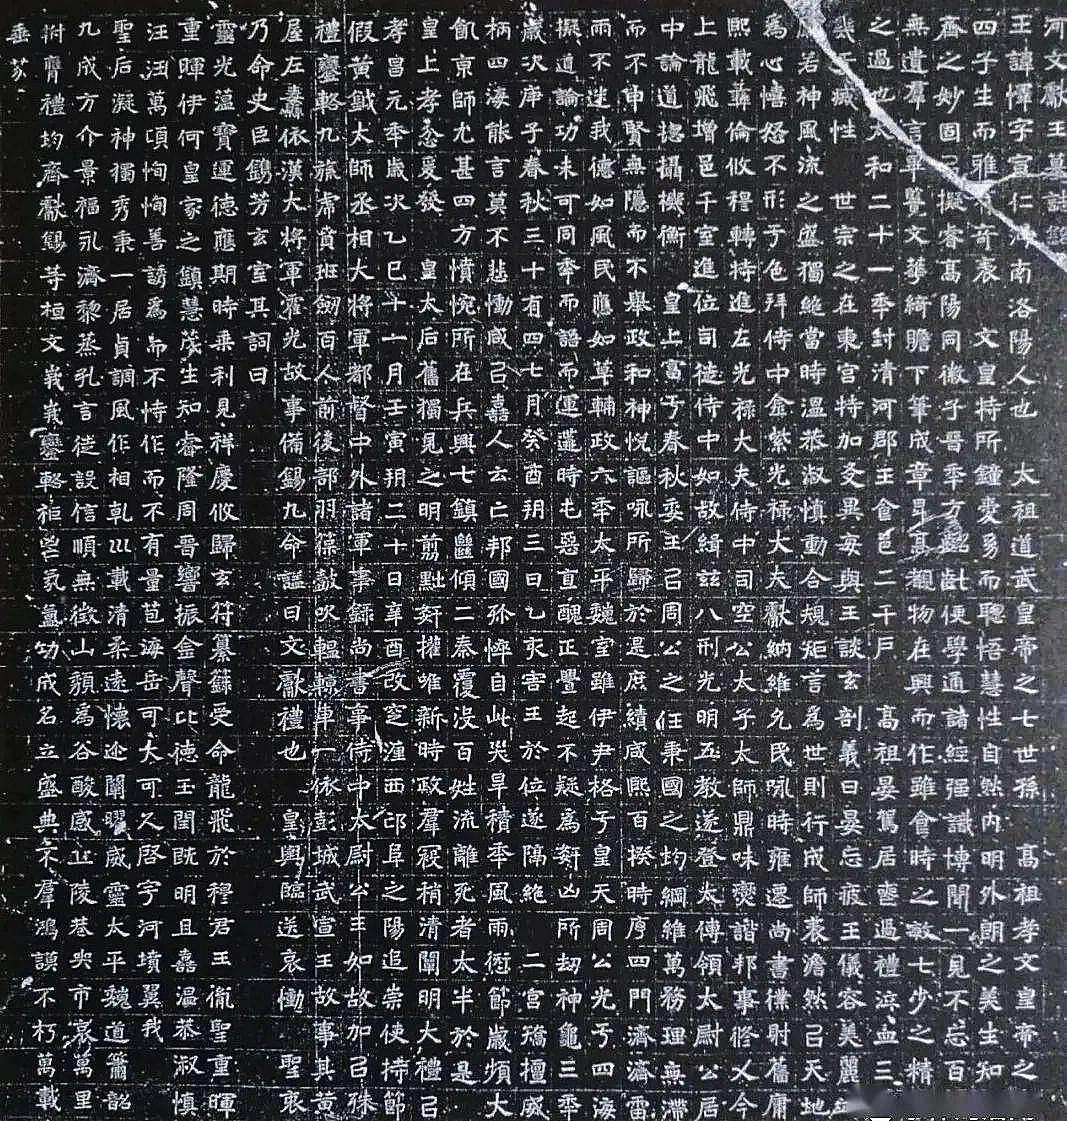 河文獻王墓誌銘
王諱懌字宣仁河南洛陽人也 太祖道武皇帝之七世孫 高祖孝文皇帝之
四子生而雅有奇表 文皇特所鍾愛易而聰悟慧性自然內明外朗之美生知
齊之妙固已擬睿高陽同徽子晉年方齠齔便學通諸經强識博聞一見不忘百
無遺羣言畢覽文華綺贍下筆成章昇高觀物在興而作雖食時之敏七少之精
之過也太和二十一年封清河郡王食邑二千戶 高祖晏駕居喪過禮泣血三
幾于滅性 世宗之在東宮特加友異每與王談玄剖義日晏忘疲王儀容美麗
若神風流之盛獨絕當時溫恭淑慎動合規矩言為世則行成師表澹然已天地
為心憘怒不形于色拜侍中金紫光祿大夫獻納維允民夙時雍遷尚書僕射舊庸
熙載彝倫攸穆轉特進左光祿大夫侍中司空公太子太師鼎味燮諧邦事修乂今
上龍飛增邑千室進位司徒侍中如故緝玆八刑光明五教遂登太傅領太尉公居
中論道總攝機衡 皇上富于春秋委王已周公之任秉國之均綱維萬務理無滯
而不申賢無隱而不舉政和神悅謳詠所歸於是庶績咸熙百揆時序四門濟濟雷
雨不迷我德如風民應如草輔政六年太平魏室雖伊尹格于皇天周公光于四海
擬道論功未可同年而語而運遘時屯惡直醜正舋起不疑為姧凶所劫神龜三年
歲次庚子春秋三十有四七月癸酉朔三日乙亥害王於位遂隔絕 二宮矯擅威
柄四海能言莫不悲慟咸已嘉人云亡邦國殄悴自此災旱積年風雨愆節歲頻大
飢京師尤甚四方憤惋所在兵興七鎮舋傾二秦覆沒百姓流離死者太半於是
皇上孝忿爰發 皇太后舊獨見之明剪黜姧權唯新時政羣寇稍清闡明大禮已
孝昌元年歲次乙巳十一月壬寅朔二十日辛酉改窆瀍西邙阜之陽追崇使持節
假黃鉞太師丞相大將軍都督中外諸軍事錄尚書事侍中太尉公王如故加已殊
禮鑾輅九旒虎賁班劒百人前後部羽葆鼓吹轀輬車一依彭城武宣王故事其黃
屋左纛依漢大將軍霍光故事備錫九命諡曰文獻禮也 皇輿臨送哀慟聖衷
乃命史臣鐫芳玄室其詞曰
靈光蘊寶運德應期時乘利見祥慶攸歸玄符纂籙受命龍飛於穆君王胤聖重暉
重暉伊何皇家之鎮慧茂生知睿隆周晉響振金聲比德玉閏既明且嘉溫恭淑慎
汪汪萬頃恂恂善誘為而不恃作而不有量苞海岳可大可久啓宇河墳翼我
聖后凝神獨秀秉一居貞調風作相乾巛載清柔遠懷迩闡曜威靈太平魏道簫韶
九成方介景福永濟黎蒸孔言徒設信順無徵山頹為谷酸感丘陵巷哭市哀萬里
拊膺禮均齊獻錫等桓文峩峩鑾輅秬鬯氛氳功成名立盛典不羣鴻謨不朽萬載
垂芬